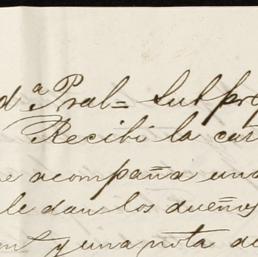 d.ª Pral= Subpre
Recibi la car
e acompaña una
le dan los dueños
ent y una nota de